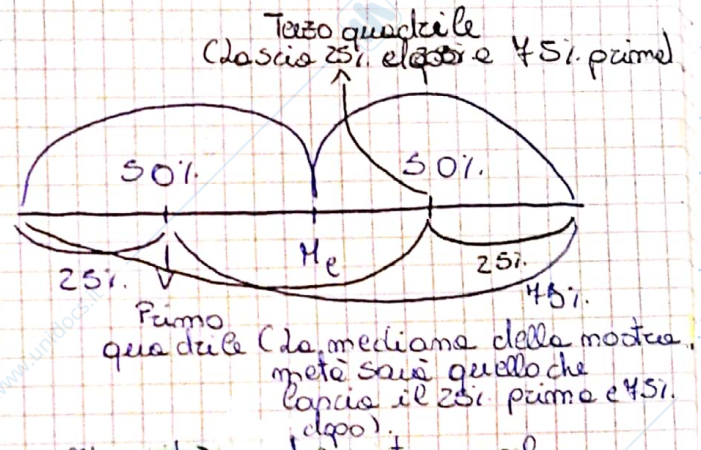 Terzo quadrile
(Lascia 25%. e dopo e 75%. prima)
50%. 50%.
Me
25%. 25%.
75%.
Primo
quadrile (La mediana della nostra
metà sarà quello che
lascia il 25%. prima e 75%.
dopo).
www.unidocs.it